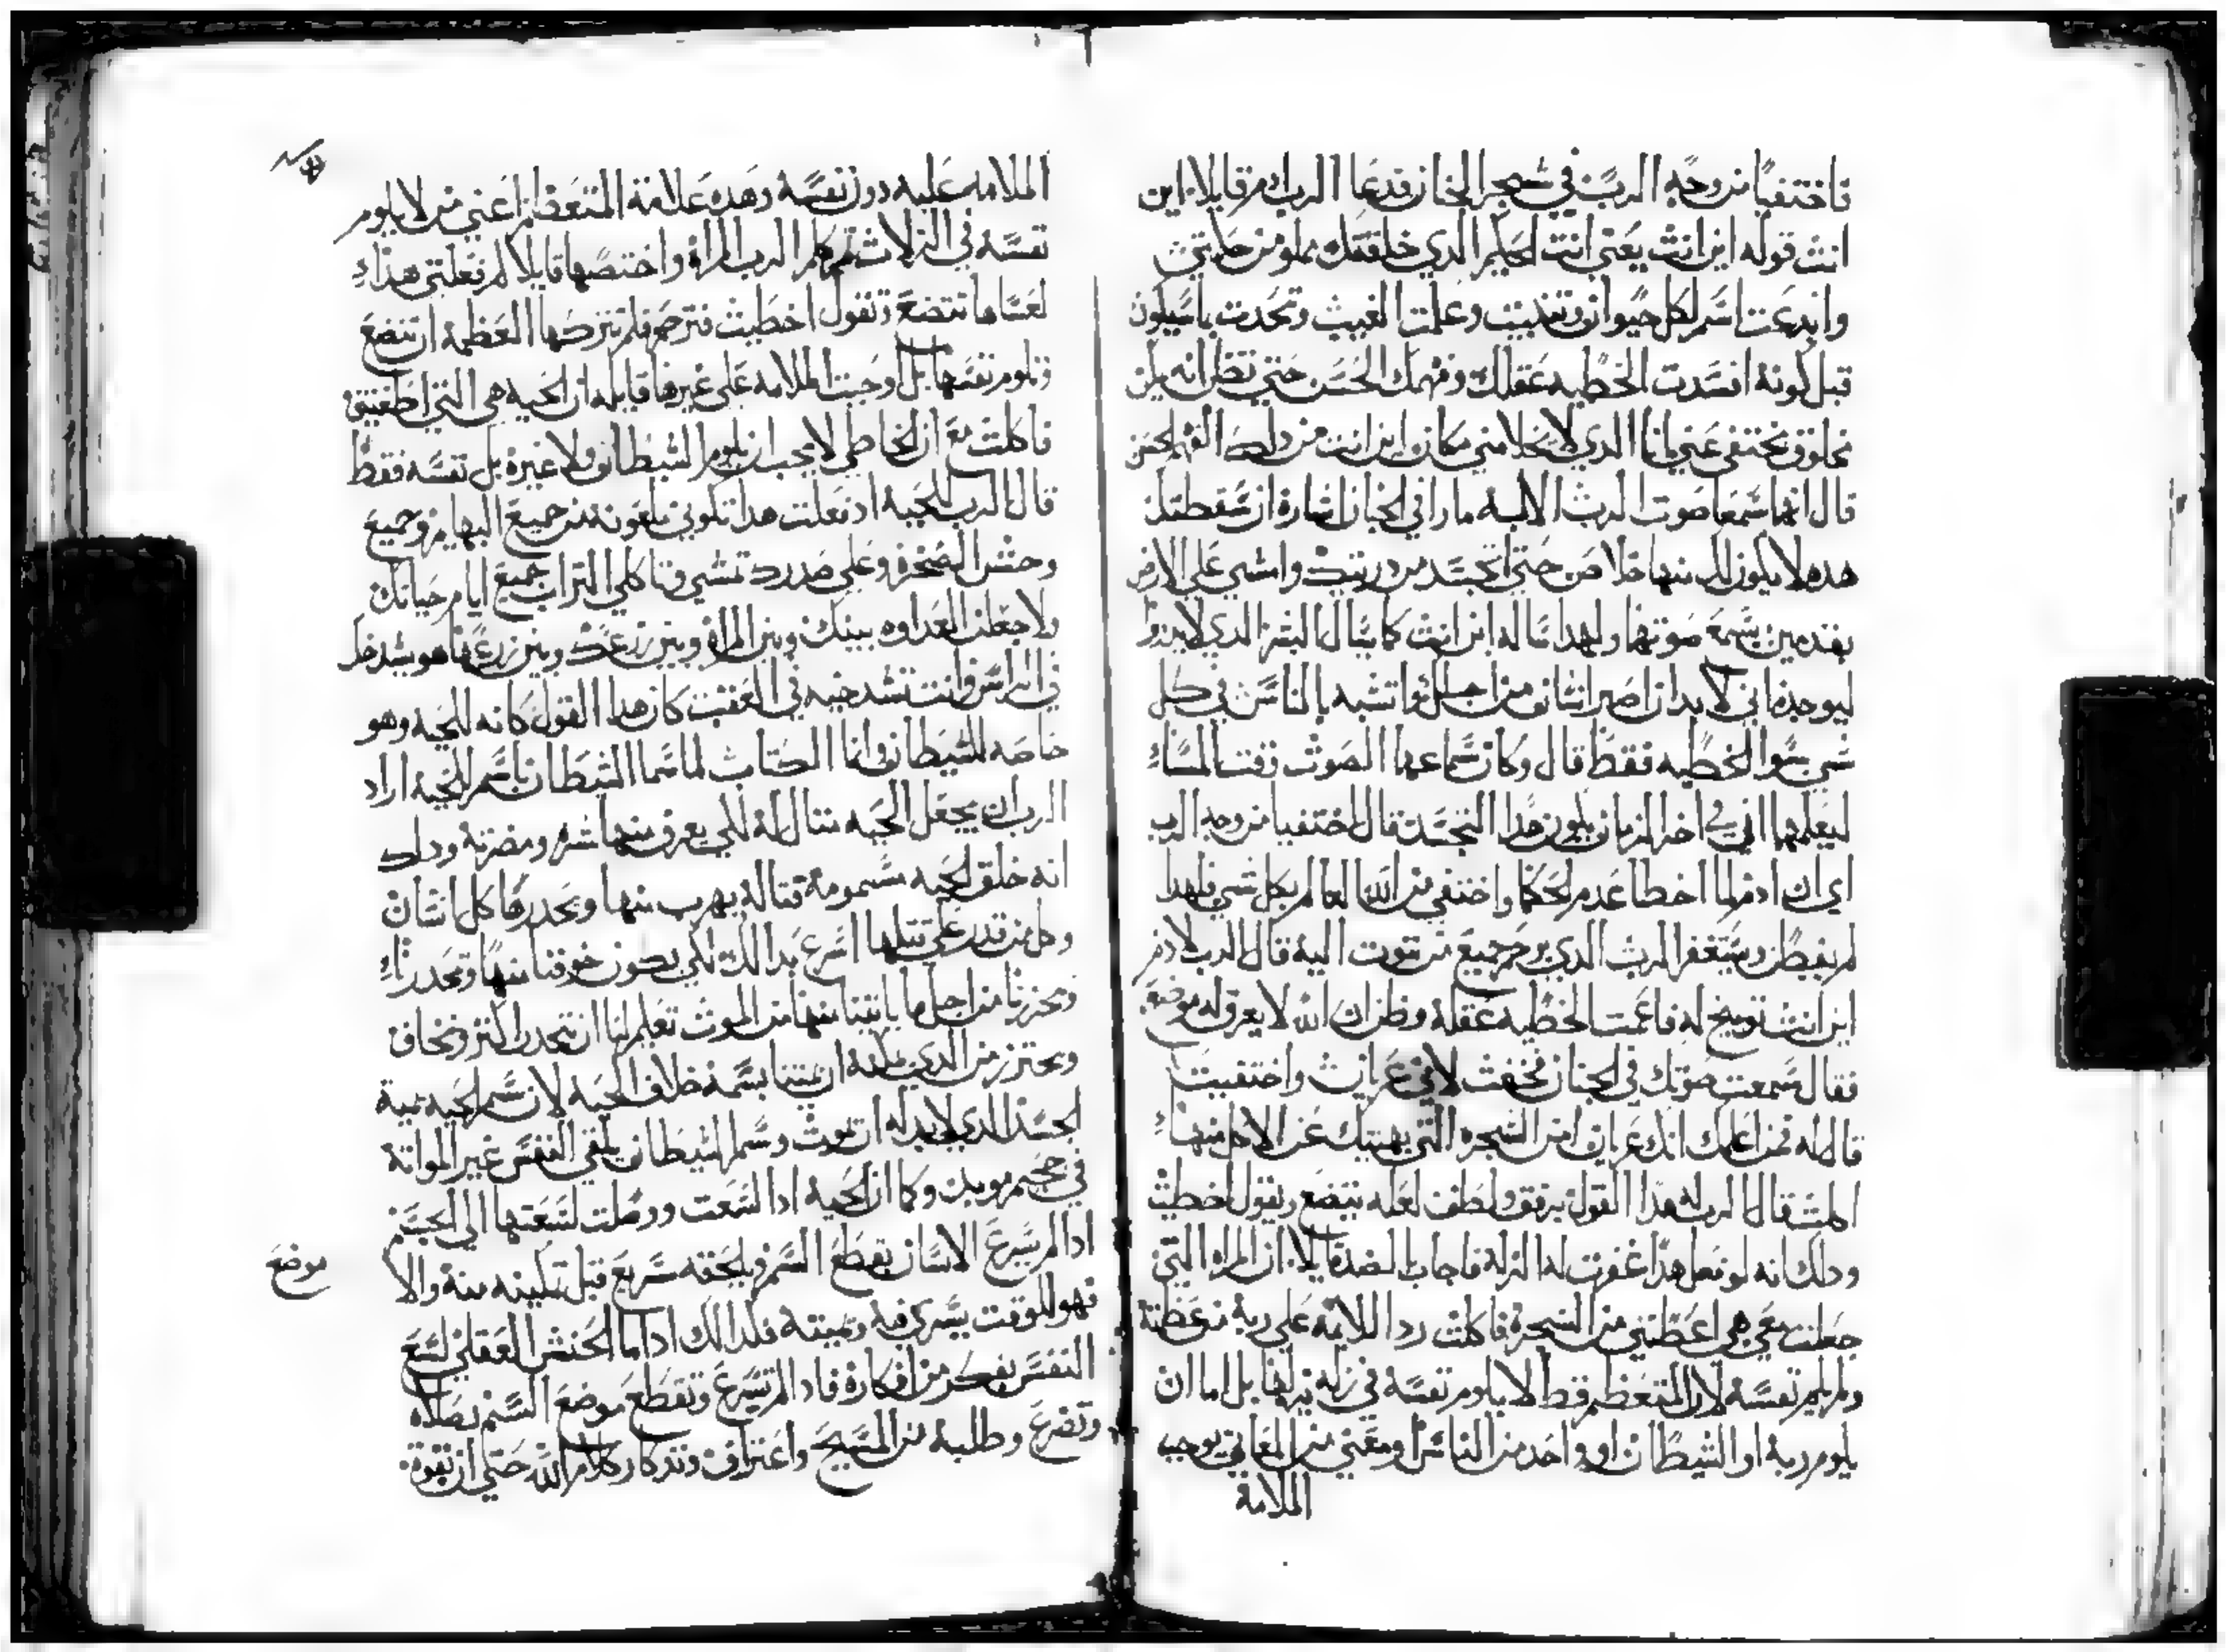 فاختفيا من وجه الرب في شجر الجنان فدعا الرب ادم قايلا اين
انت قوله اين انت يعني انت الحكيم الذي خلقتك مملو من حكمتي
وابدعت اسم لكل حيوان وتنبيت وعلمت الغيب وتحدت بما سيكون
قبل كونه افسدت الخطيه عقلك وفهمك الحسن حتي تظن انه يمكن
مخلوق يختفي عني انا الدي لا يخلا مني مكان اين انت من دلك الفهم الحسن
قال انهما سمعا صوت الرب الاله مارا في الجنان اشارة ان سقطتك
هده لا يكون لك منها خلاص حتي اتجسد من دريتك وامشي علي الارض
بقدمين يسمع صوتهما ولهدا قال له اين انت كما يسال البشر الدي لا يدروا
ليوجد فاني لا بد ان اصير انسان من اجلك واتشبه بالناس في كل
شي سوا الخطيه فقط قال وكان سماعهما الصوت وقت المساء
ليعلمهما اني في اخر الزمان يكون هدا التجسد قال اختفيا من وجه الرب
اي ان ادم لما اخطا عدم الحكمه واختفي من الله العالم بكل شي فلهدا
لم يفطن ويستغفر الرب الدي يرحم جميع من يتوب اليه قال الرب لادم
اين انت توبيخ له فاعمت الخطيه عقله وظن ان الله لا يعرف له موضع
فقال سمعت صوتك في الجنان فخفت لاني عريان واختفيت
قال له فمن اعلمك انك عريان امن الشجره التي نهيتك عن الاكل منها
اكلت قال الرب له هدا القول برفق ولطف لعله يتضع ويقول اخطيت
ودلك انه لو فعل هدا غفرت له الزله فاجاب بالضد قايلا ان المراه التي
جعلت معي هي اعطتني من الشجره فاكلت ردا اللايمه علي ربه من عظمته
ولم يلم نفسه لان المتعظم قط لا يلوم نفسه في زله يزلها بل اما ان
يلوم ربه او الشيطان او واحد من الناس او معني من المعاني يوجب
الملامة
الملامه عليه دون نفسه وهده علامة المتعظم اعني من لا يلوم
نفسه في الزلات ثم كلم الرب المراه واختصها قايلا لم فعلتي هداء
لعساها تتضع وتقول اخطيت فترحم فلم تتركها العظمه ان تتضع
وتلوم نفسها بل اوجبت الملامه علي غيرها قايله ان الحيه هي التي اطغتني
فاكلت مع ان الخاطي لا يجب ان يلوم الشيطان ولا غيره بل نفسه فقط
قال الرب للحيه اد فعلت هدا تكوني ملعونه من جميع البهايم وجميع
وحش الصحره وعلي صدرك تمشي وتاكلي التراب جميع ايام حياتك
ولاجعلن العداوه بينك وبين المراه وبين زرعك وبين زرعها هو يشدخك
في الراس وانت تشدخيه في العقب كان هدا القول كانه للحيه وهو
خاصه للشيطان وانما الكتاب لما سما الشيطان باسم الحيه اراد
الرب ان يجعل الحيه مثال له لكي يعرف منها شره ومضرته ودلك
انه خلق الحيه مسمومه قتاله يهرب منها ويحدرها كل انسان
وكل من قدر علي قتلها اسرع بدالك لكي يكون خوفنا منها وتحدرنا
وتحرزنا من اجل ما ياتينا منها من الموت تعليم لنا ان نتحدر اكتر ونخاف
ونحترز من الدي يمكنه ان يميتنا بسمه خلاف الحيه لان سم الحيه يميت
الجسد الدي لا بد له ان يموت وسم الشيطان يلقي النفس غير المواتة
في جحيم موبد وكما ان الحيه ادا لسعت ووصلت لسعتها الي الجسم
ادا لم يسرع الانسان بقطع السم ويلحقه سريع قبل تمكينه منه والا
موضع
فهو للوقت يسري فيه ويميته فلدالك ادا ما الحنش العقلي لسع
النفس بفكر من افكاره فاد لم تسرع وتقطع موضع السم بصلاه
وتضرع وطلبه من المسيح واعتراف وتدكار كلام الله حتي ان تقوة